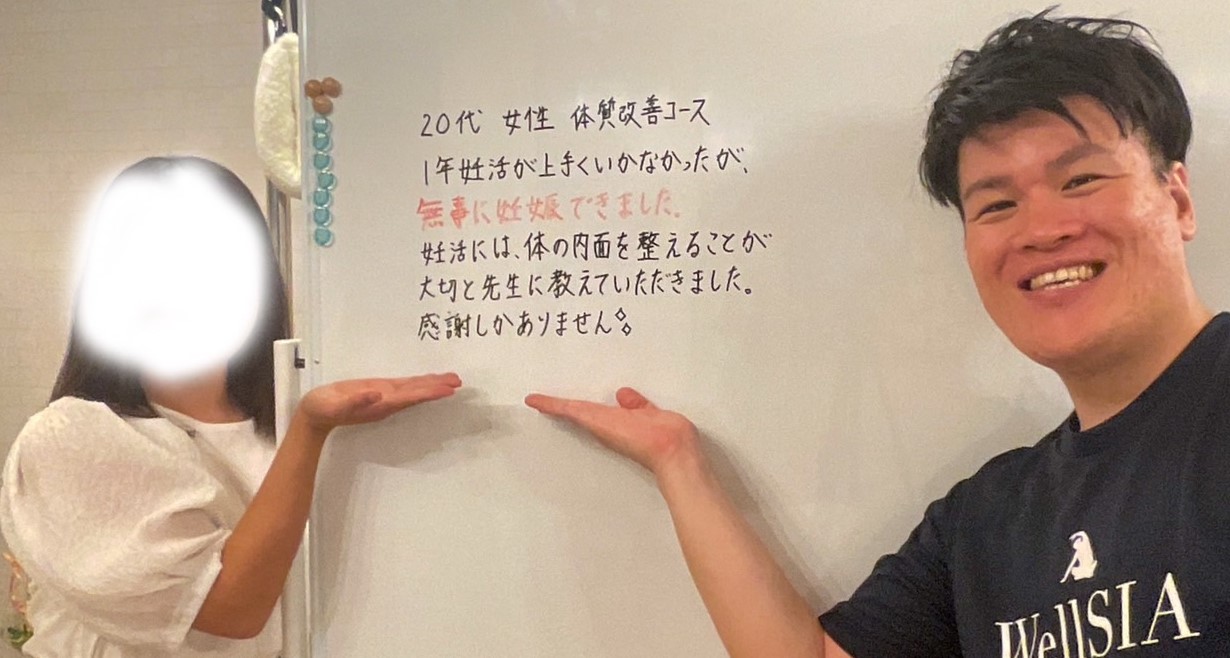 20代 女性 体質改善コース
1年妊活が上手くいかなかったが、
無事に妊娠できました。
妊活には、体の内面を整えることが
大切と先生に教えていただきました。
感謝しかありません
WellSIA